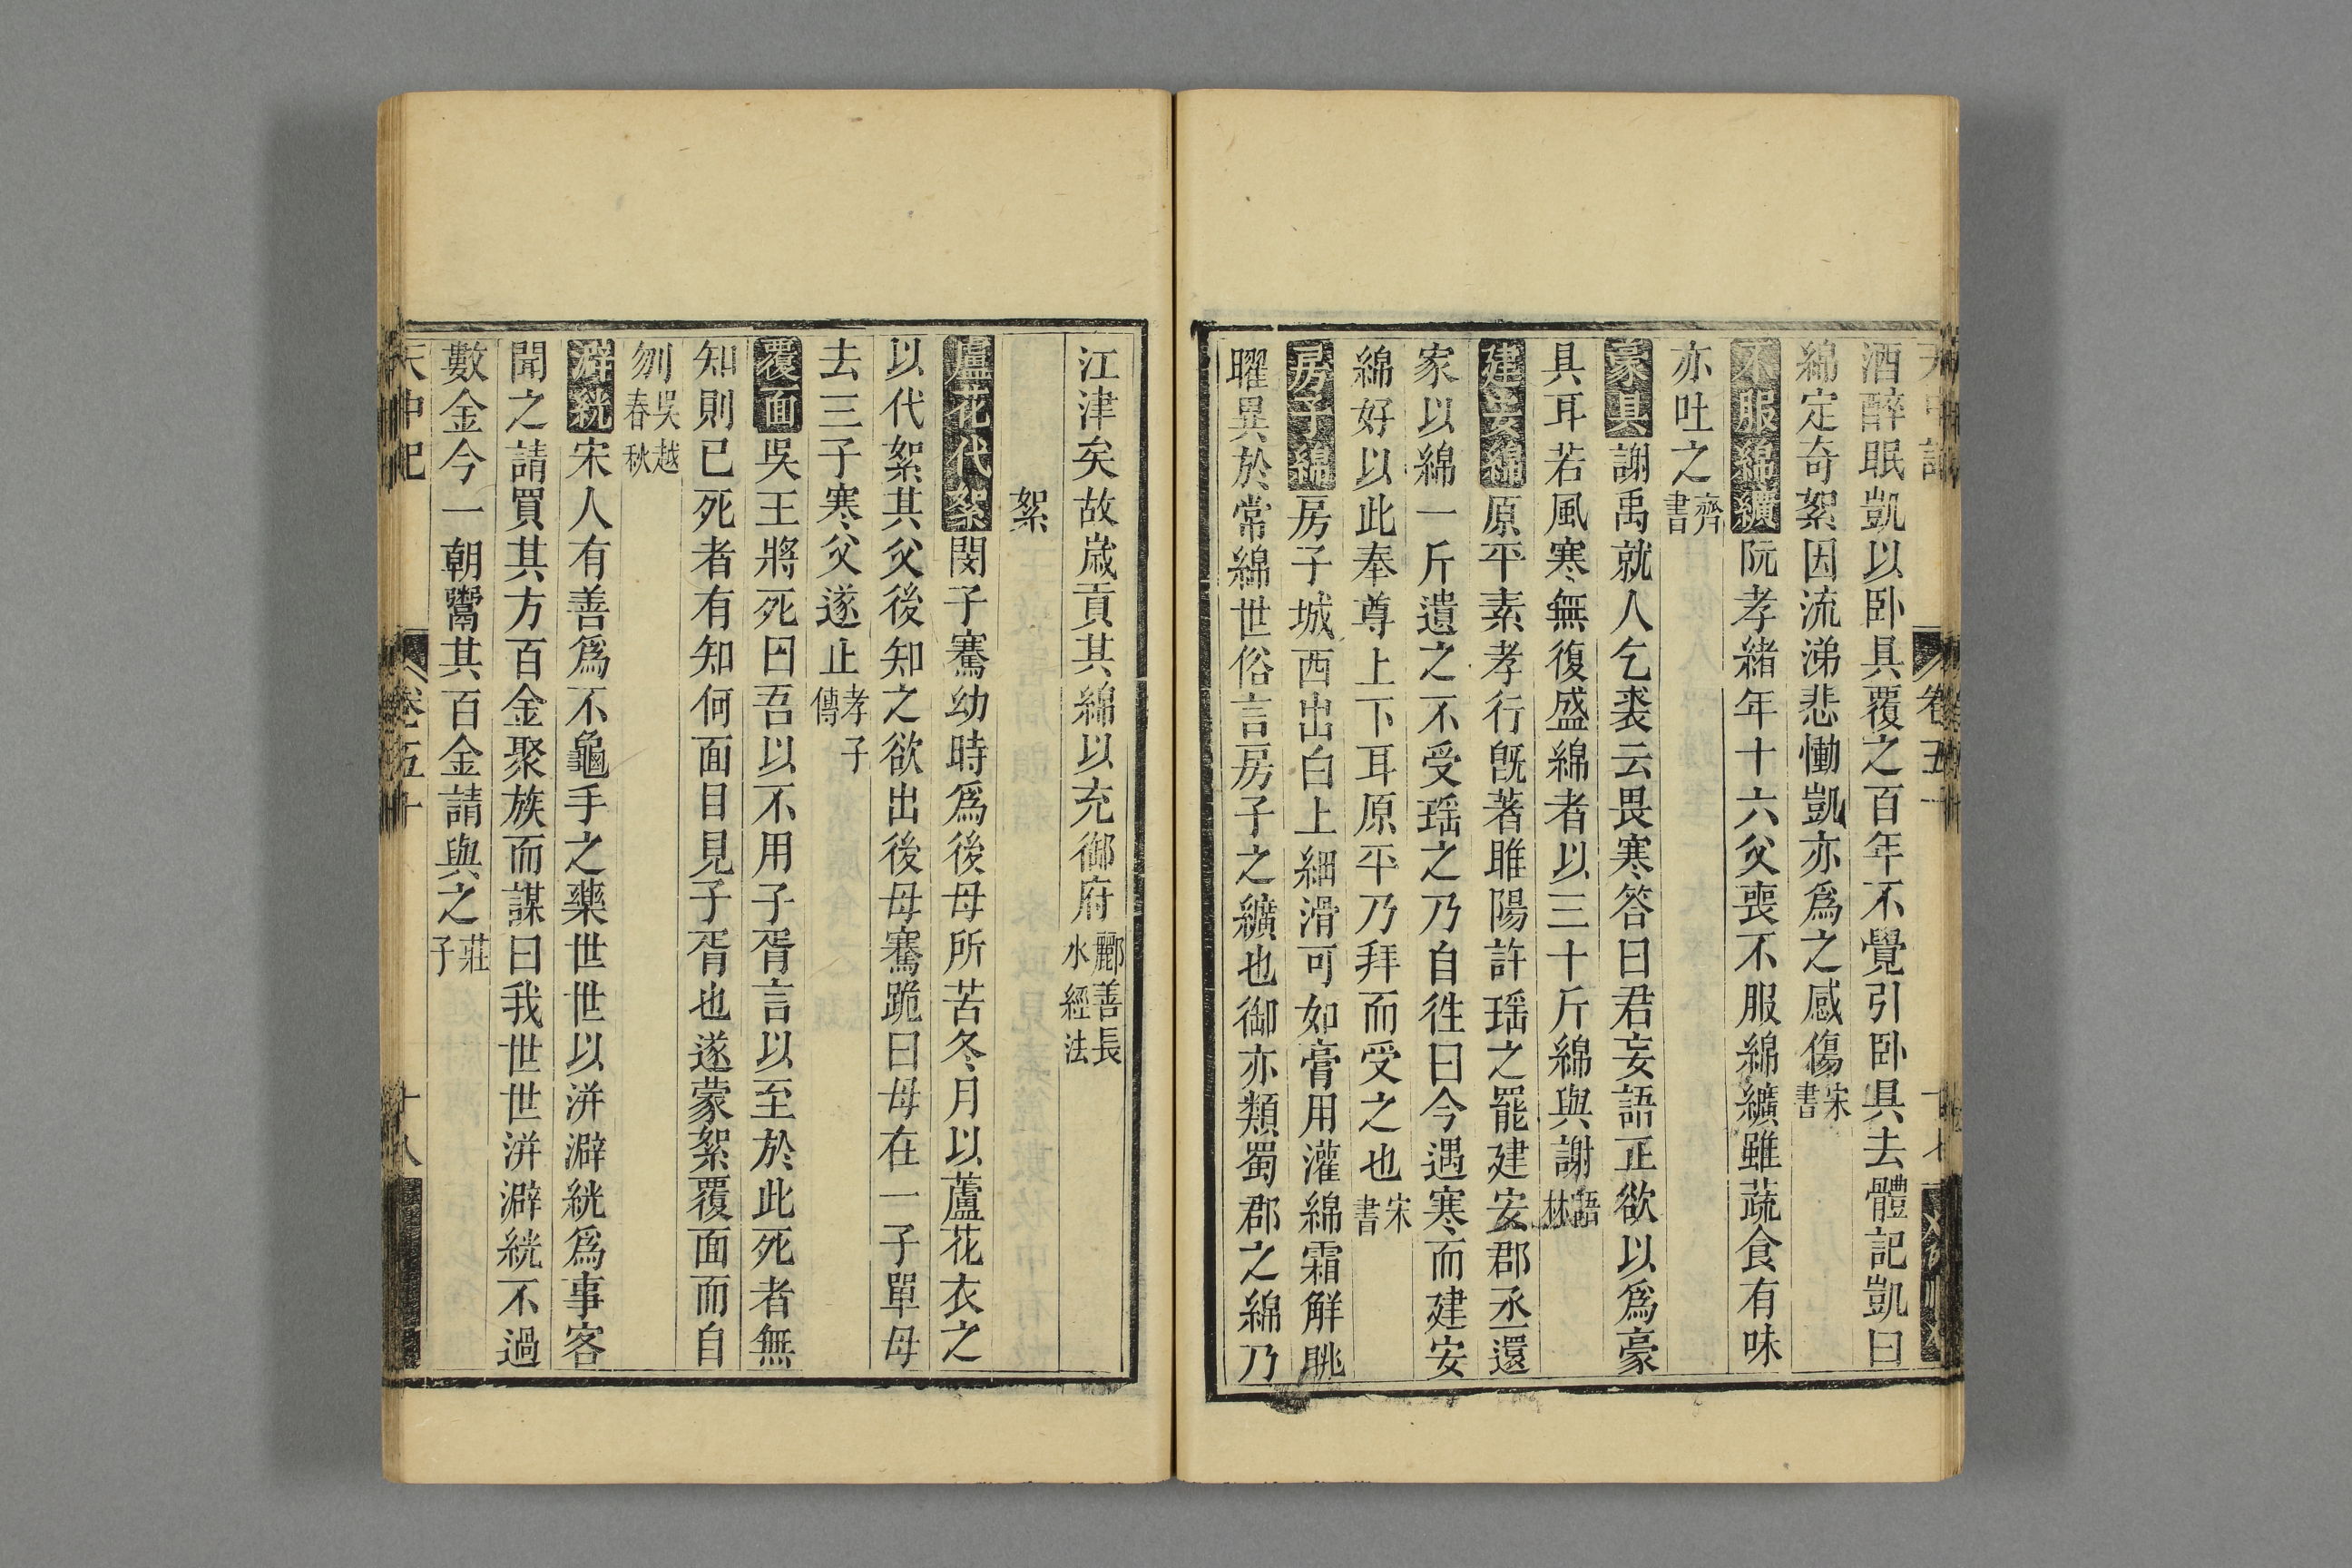 酒醉眠凱以卧具覆之百年不覺引卧具去體記凱曰
綿定奇絮因流涕悲慟凱亦爲之感傷宋書
不服綿纊阮孝緒年十六父喪不服綿纊雖蔬食有味
亦吐之齊書
豪具謝禹就人乞裘云畏寒答曰君妄語正欲以爲豪
具耳若風寒無復盛綿者以三十斤綿與謝語林
建安綿原平素孝行旣著雎陽許瑶之罷建安郡丞還
家以綿一斤遺之不受瑶之乃自徃曰今遇寒而建安
綿好以此奉尊上下耳原平乃拜而受之也宋書
房子綿房子城西出白上細滑可如膏用灌綿霜觧眺
曜異於常綿世俗言房子之纊也御亦類蜀郡之綿乃
江津矣故歲貢其綿以充御府酈善長水經法
絮
蘆花代絮閔子騫幼時爲後母所苦冬月以蘆花衣之
以代絮其父後知之欲出後母騫跪曰母在一子單母
去三子寒父遂止孝子傳
覆面吳王將死曰吾以不用子胥言以至於此死者無
知則已死者有知何面目見子胥也遂蒙絮覆面而自
刎吳越春秋
澼絖宋人有善爲不龜手之藥世世以洴澼絖爲事客
聞之請買其方百金聚族而謀曰我世世洴澼絖不過
數金今一朝鬻其百金請與之莊子
天中記 卷五十 十八